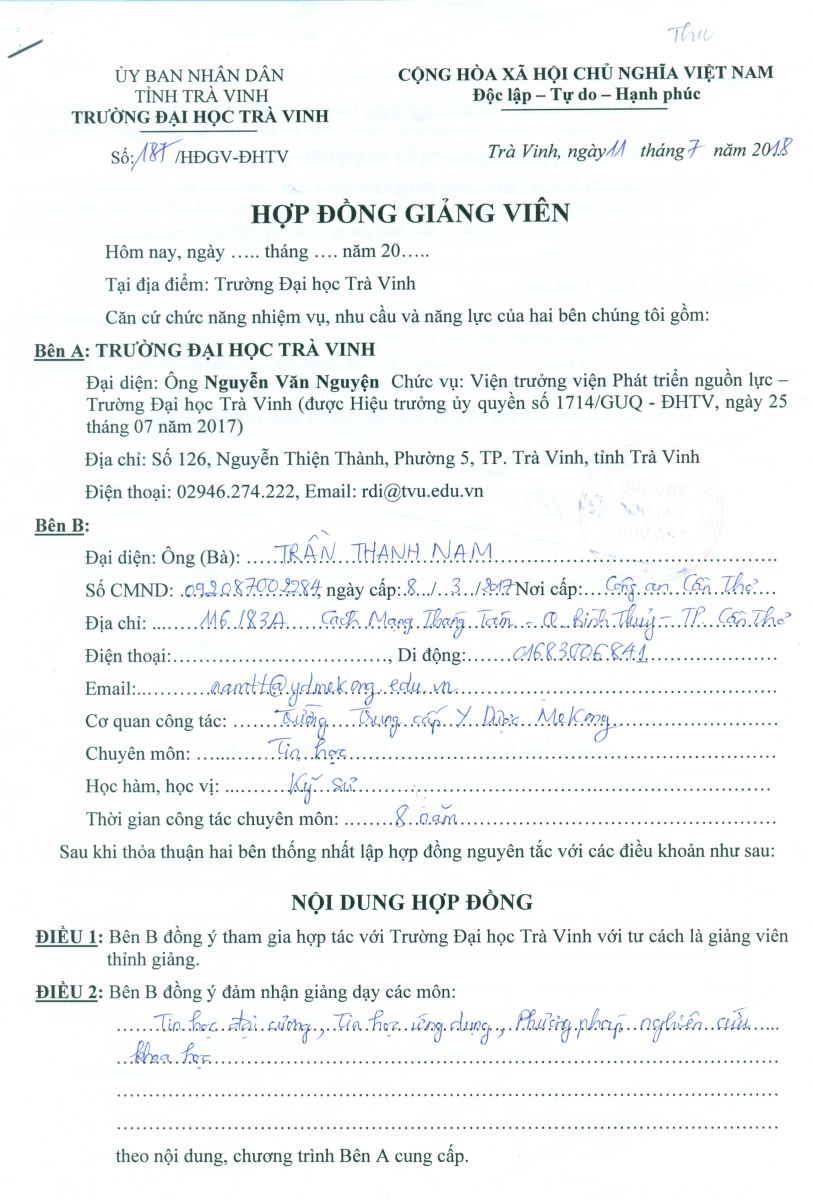 Thu
ỦY BAN NHÂN DÂN
TỈNH TRÀ VINH
TRƯỜNG ĐẠI HỌC TRÀ VINH
CỘNG HÒA XÃ HỘI CHỦ NGHĨA VIỆT NAM
Độc lập – Tự do – Hạnh phúc
Số: 187 /HĐGV-ĐHTV
Trà Vinh, ngày 11 tháng 7 năm 2018
HỢP ĐỒNG GIẢNG VIÊN
Hôm nay, ngày ….. tháng …. năm 20…..
Tại địa điểm: Trường Đại học Trà Vinh
Căn cứ chức năng nhiệm vụ, nhu cầu và năng lực của hai bên chúng tôi gồm:
Bên A: TRƯỜNG ĐẠI HỌC TRÀ VINH
Đại diện: Ông Nguyễn Văn Nguyện Chức vụ: Viện trưởng viện Phát triển nguồn lực –
Trường Đại học Trà Vinh (được Hiệu trưởng ủy quyền số 1714/GUQ - ĐHTV, ngày 25
tháng 07 năm 2017)
Địa chỉ: Số 126, Nguyễn Thiện Thành, Phường 5, TP. Trà Vinh, tỉnh Trà Vinh
Điện thoại: 02946.274.222, Email: rdi@tvu.edu.vn
Bên B:
Đại diện: Ông (Bà): TRẦN THANH NAM
Số CMND: 092087002284, ngày cấp: 8 / 3 /2017 Nơi cấp: Công an Cần Thơ
Địa chỉ: 116/83A Cách Mạng Tháng Tám - Q Bình Thuỷ - TP Cần Thơ
Điện thoại:……………………………, Di động: 01683006841
Email: namtt@ydmekong.edu.vn
Cơ quan công tác: Trường Trung cấp Y Dược MeKong
Chuyên môn: Tin học
Học hàm, học vị: Kỹ sư
Thời gian công tác chuyên môn: 8 năm
Sau khi thỏa thuận hai bên thống nhất lập hợp đồng nguyên tắc với các điều khoản như sau:
NỘI DUNG HỢP ĐỒNG
ĐIỀU 1: Bên B đồng ý tham gia hợp tác với Trường Đại học Trà Vinh với tư cách là giảng viên
thỉnh giảng.
ĐIỀU 2: Bên B đồng ý đảm nhận giảng dạy các môn:
Tin học đại cương, Tin học ứng dụng, Phương pháp nghiên cứu
khoa học
theo nội dung, chương trình Bên A cung cấp.